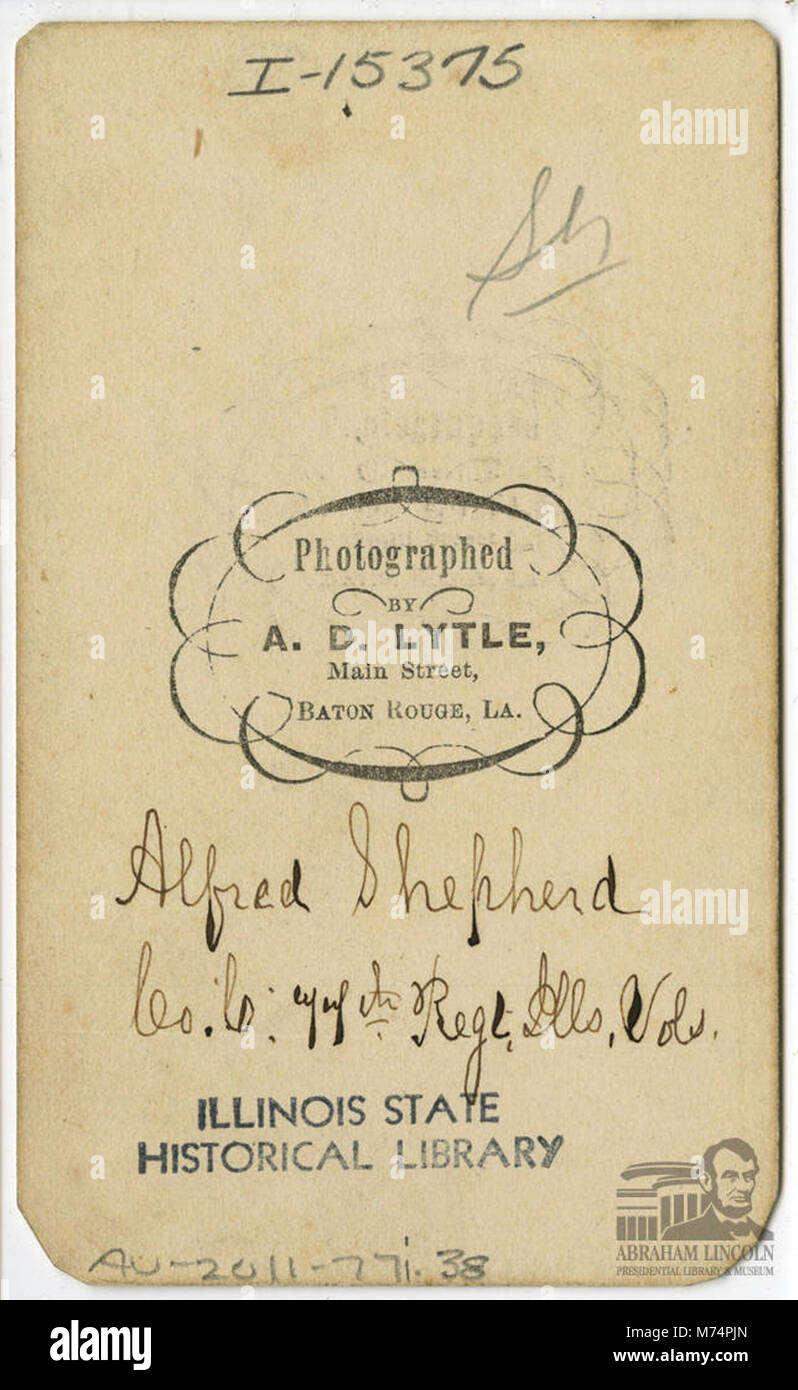 I-15375
Photographed
BY
A. D. LYTLE,
Main Street,
BATON ROUGE, LA.
Alfred Shepherd
Co. C. 77th Regt, Ills, Vols.
ILLINOIS STATE
HISTORICAL LIBRARY
AV-2011-771.38
ABRAHAM LINCOLN
PRESIDENTIAL LIBRARY & MUSEUM
a alamy
a
alamy
Image ID: M74PJN
www.alamy.com